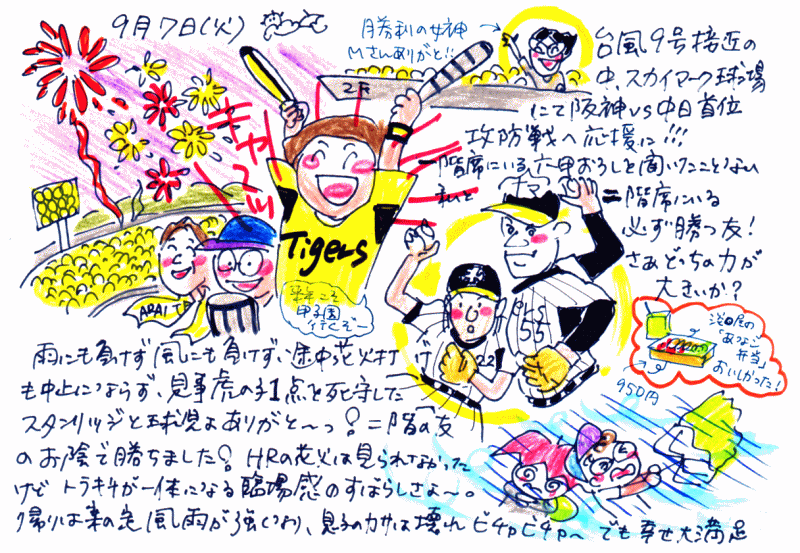 9月7日(火)
勝利の女神
Mさんありがと!!
台風9号接近の
中、スカイマーク球場
にて阪神vs中日首位
攻防戦へ応援に!!!
一階席にいる六甲おろしを聞いたことない
私と
二階席にいる
必ず勝つ友!
さあどっちの力が
大きいか?
2F
キャーッ
Tigers
来年こそ
甲子園
行くぞー
ARAI
55
22
「あなご
弁当」
おいしかった!
950円
雨にも負けず風にも負けず、途中花火打げ
も中止にならず、見事虎の子1点を死守した
スタンリッジと球児よありがと〜っ!二階の友
のお陰で勝ちました!HRの花火は見られなかった
けどトラキチが一体になる臨場感のすばらしさよ〜。
帰りは案の定風雨が強くなり、息子のカサは壊れビチャビチャ〜でも幸せ大満足